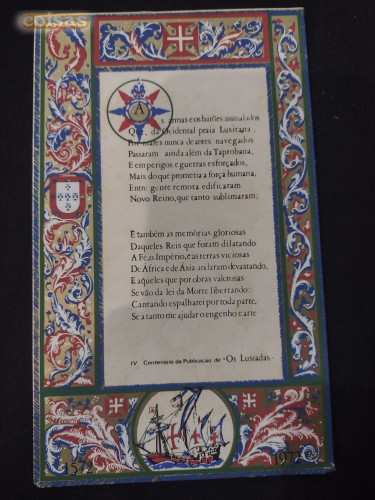 coisas
A
s armas e os barões assinalados
Que, da Ocidental praia Lusitana,
Por mares nunca de antes navegados
Passaram ainda além da Taprobana,
E em perigos e guerras esforçados,
Mais do que prometia a força humana,
Entre gente remota edificaram
Novo Reino, que tanto sublimaram;
E também as memórias gloriosas
Daqueles Reis que foram dilatando
A Fé, o Império, e as terras viciosas
De África e de Ásia andaram devastando,
E aqueles que por obras valerosas
Se vão da lei da Morte libertando:
Cantando espalharei por toda parte,
Se a tanto me ajudar o engenho e arte
IV Centenário da Publicação de «Os Lusíadas»
1572
1972